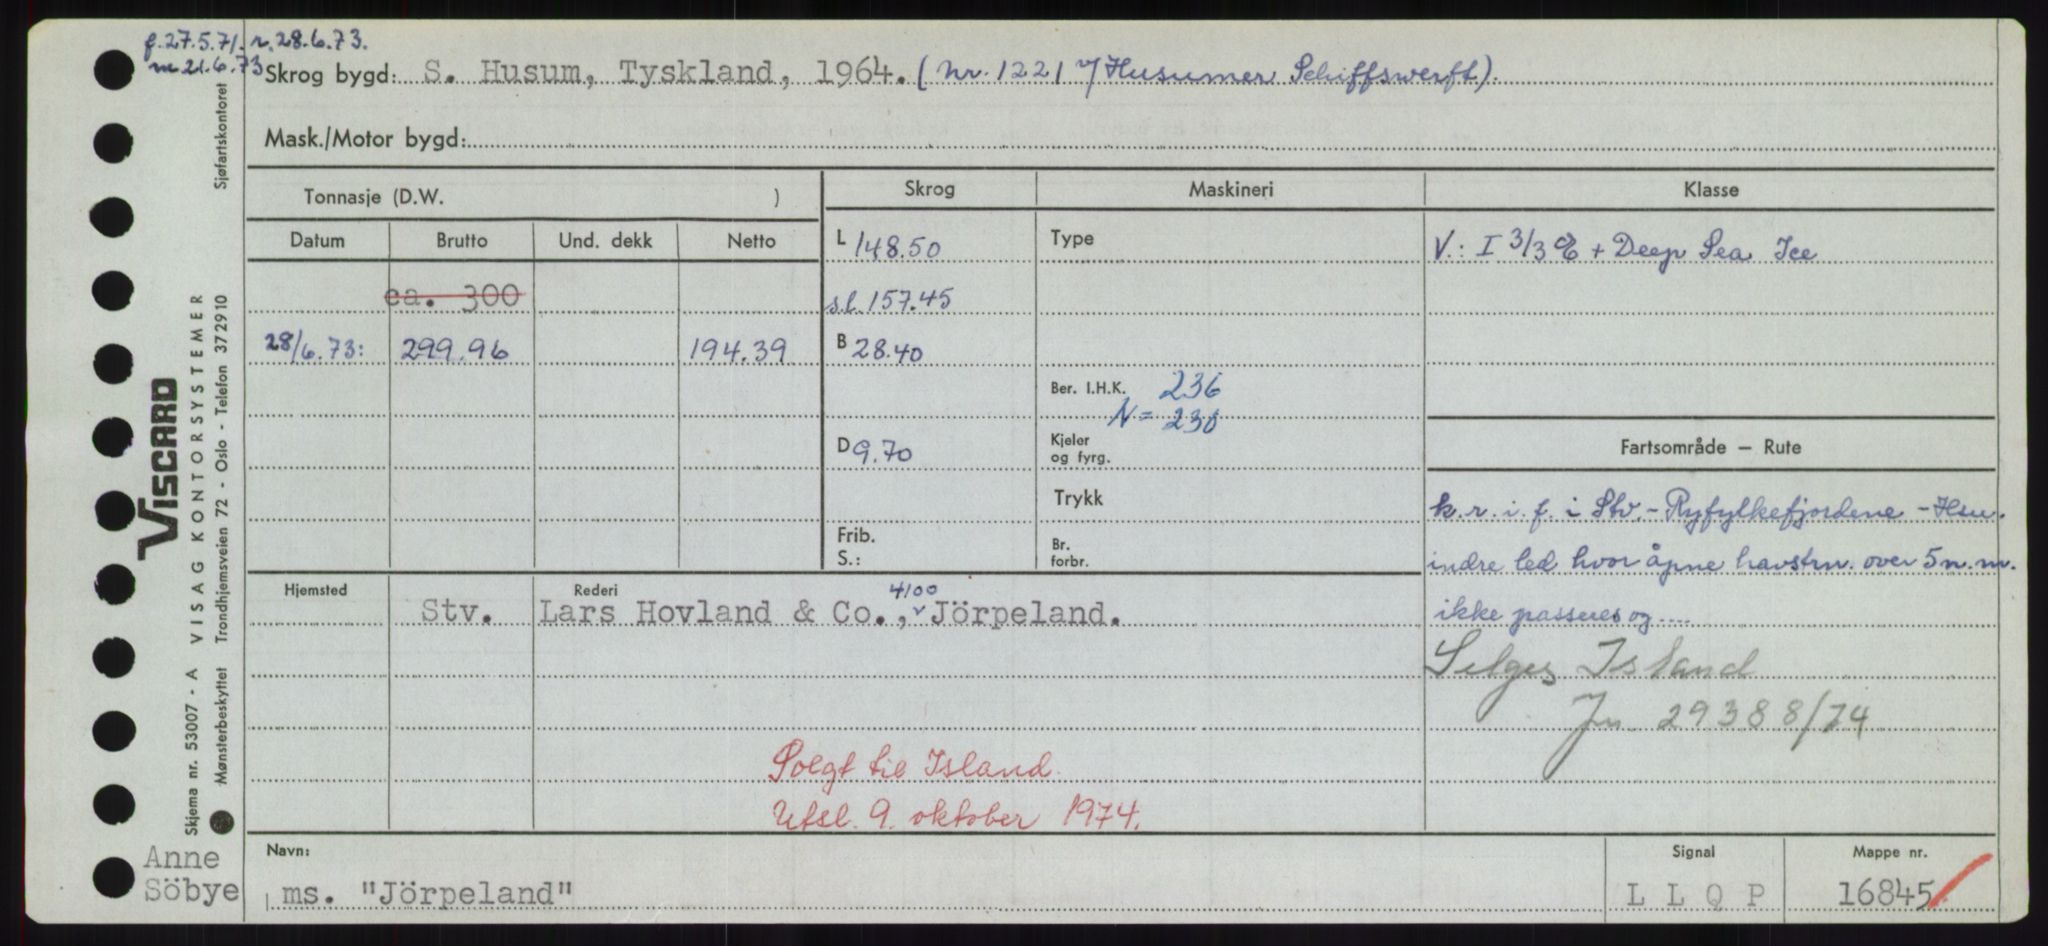 f. 27.5.71. r. 28.6.73.
m 21.6.73
Skrog bygd: S. Husum, Tyskland, 1964. (Nr. 1221 v/Husumer Schiffswerft).
Mask./Motor bygd:
Tonnasje (D.W. )
Skrog
Maskineri
Klasse
Datum
Brutto
Und. dekk
Netto
L 148.50
Type
V.: I 3/3 + Deep Sea Ice
ca. 300
s.l. 157.45
28/6.73: 299.96 194.39
B 28.40
Ber. I.H.K. 236
N = 230
D 9.70
Kjeler
og fyrg.
Fartsområde — Rute
Trykk
k.r.i.f. i Stv.-Ryfylkefjordene - Hsu.
Frib.
S.:
Br.
forbr.
indre led hvor åpne havstrn. over 5 n.m.
ikke passeres og ....
Hjemsted
Rederi
4100
Stv. Lars Hovland & Co., Jörpeland.
Selges Island
Jn 29388/74
Solgt til Island.
Utsl. 9. oktober 1974.
Navn:
ms. "Jörpeland"
Signal
L L Q P
Mappe nr.
16845
Anne
Söbye
VISCARD
Skjema nr. 53007 - A VISAG KONTORSYSTEMER
Mønsterbeskyttet Trondhjemsveien 72 - Oslo - Telefon 372910
Sjøfartskontoret